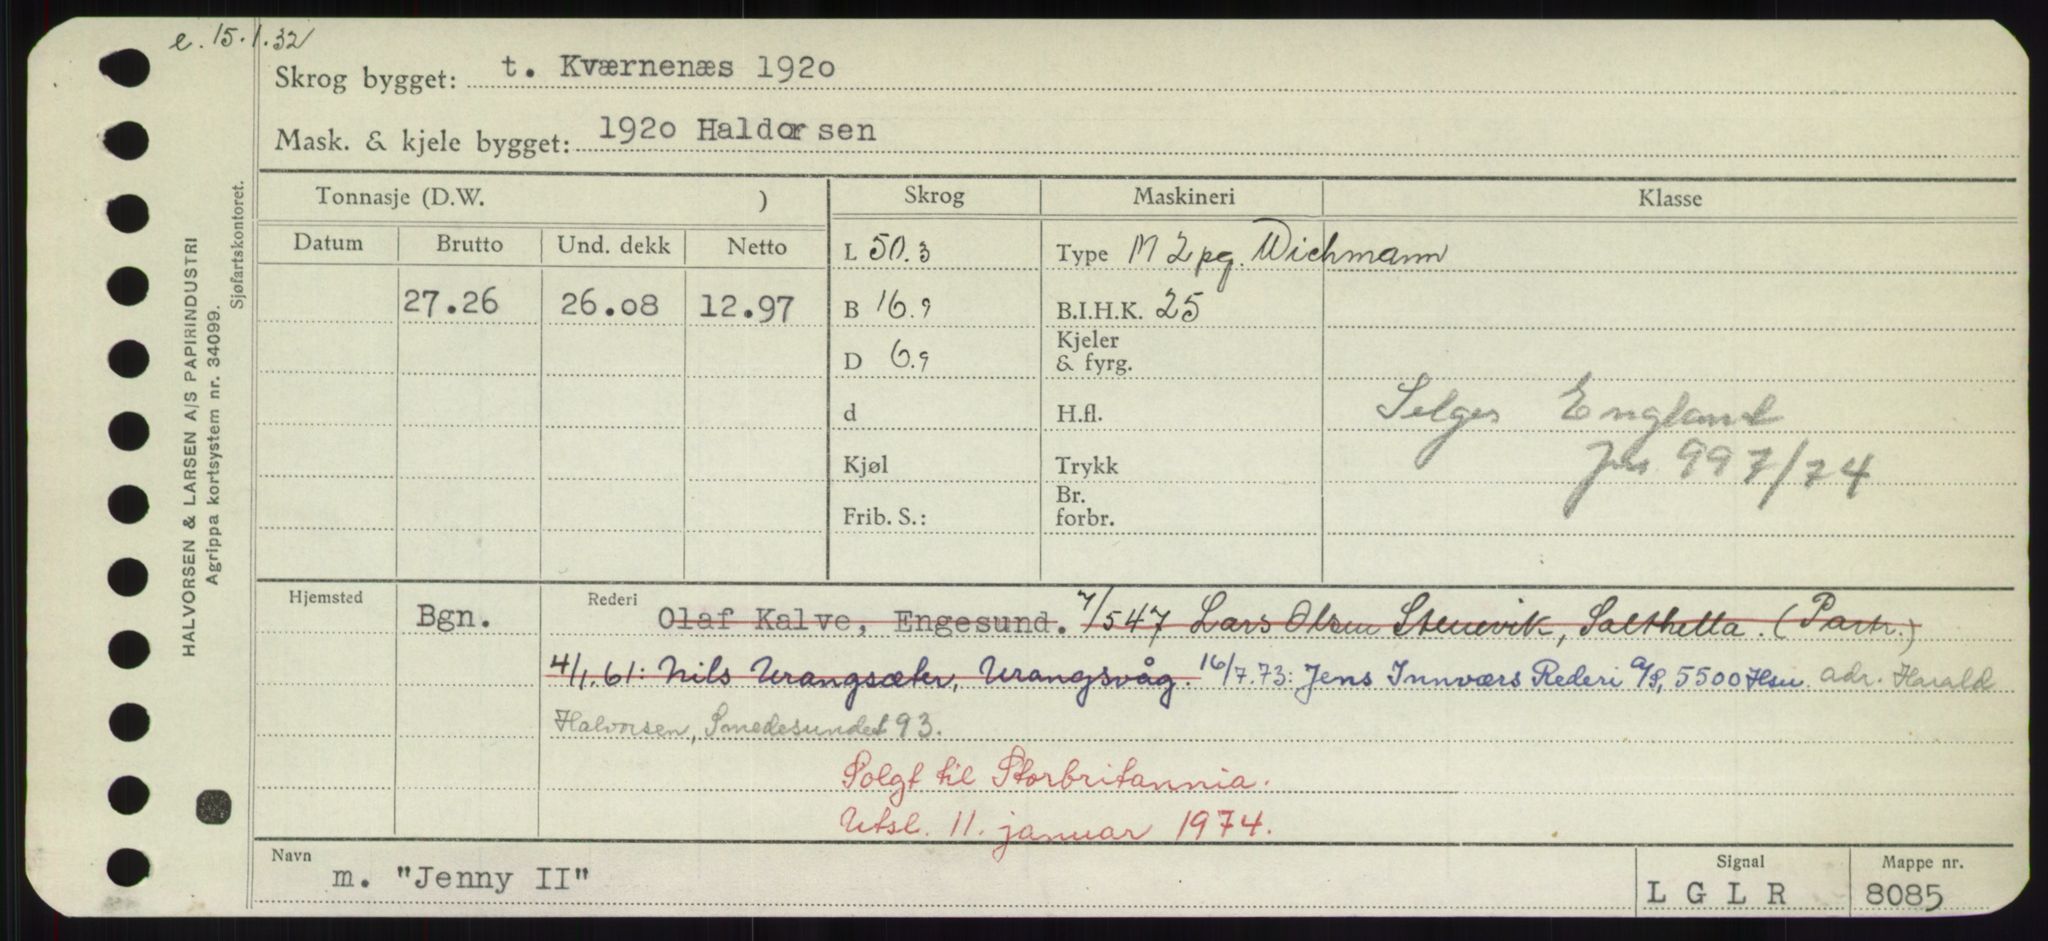 e. 15.1.32
Skrog bygget: t. Kværnenæs 1920
Mask. & kjele bygget: 1920 Haldorsen
Tonnasje (D.W. ) Skrog Maskineri Klasse
Datum Brutto Und. dekk Netto L 50.3 Type M 2 pg. Wichmann
27.26 26.08 12.97 B 16.9 B.I.H.K. 25
D 6.9 Kjeler & fyrg.
d H.fl. Selges England
Kjøl Trykk 997/74
Frib. S.: Br. forbr.
Hjemsted Bgn. Rederi Olaf Kalve, Engesund. 7/547 Lars Olsen Stenevik, Salthella. (Partr.)
4/1.61: Nils Urangsæter, Urangsvåg. 16/7.73: Jens Innværs Rederi A/S, 5500 Hsu adr. Harald
Halvorsen, Smedesundet 93.
Solgt til Storbritannia.
Utsl. 11. januar 1974.
Navn m. "Jenny II" Signal LGLR Mappe nr. 8085
HALVORSEN & LARSEN A/S PAPIRINDUSTRI
Agrippa kortsystem nr. 34099.
Sjøfartskontoret.